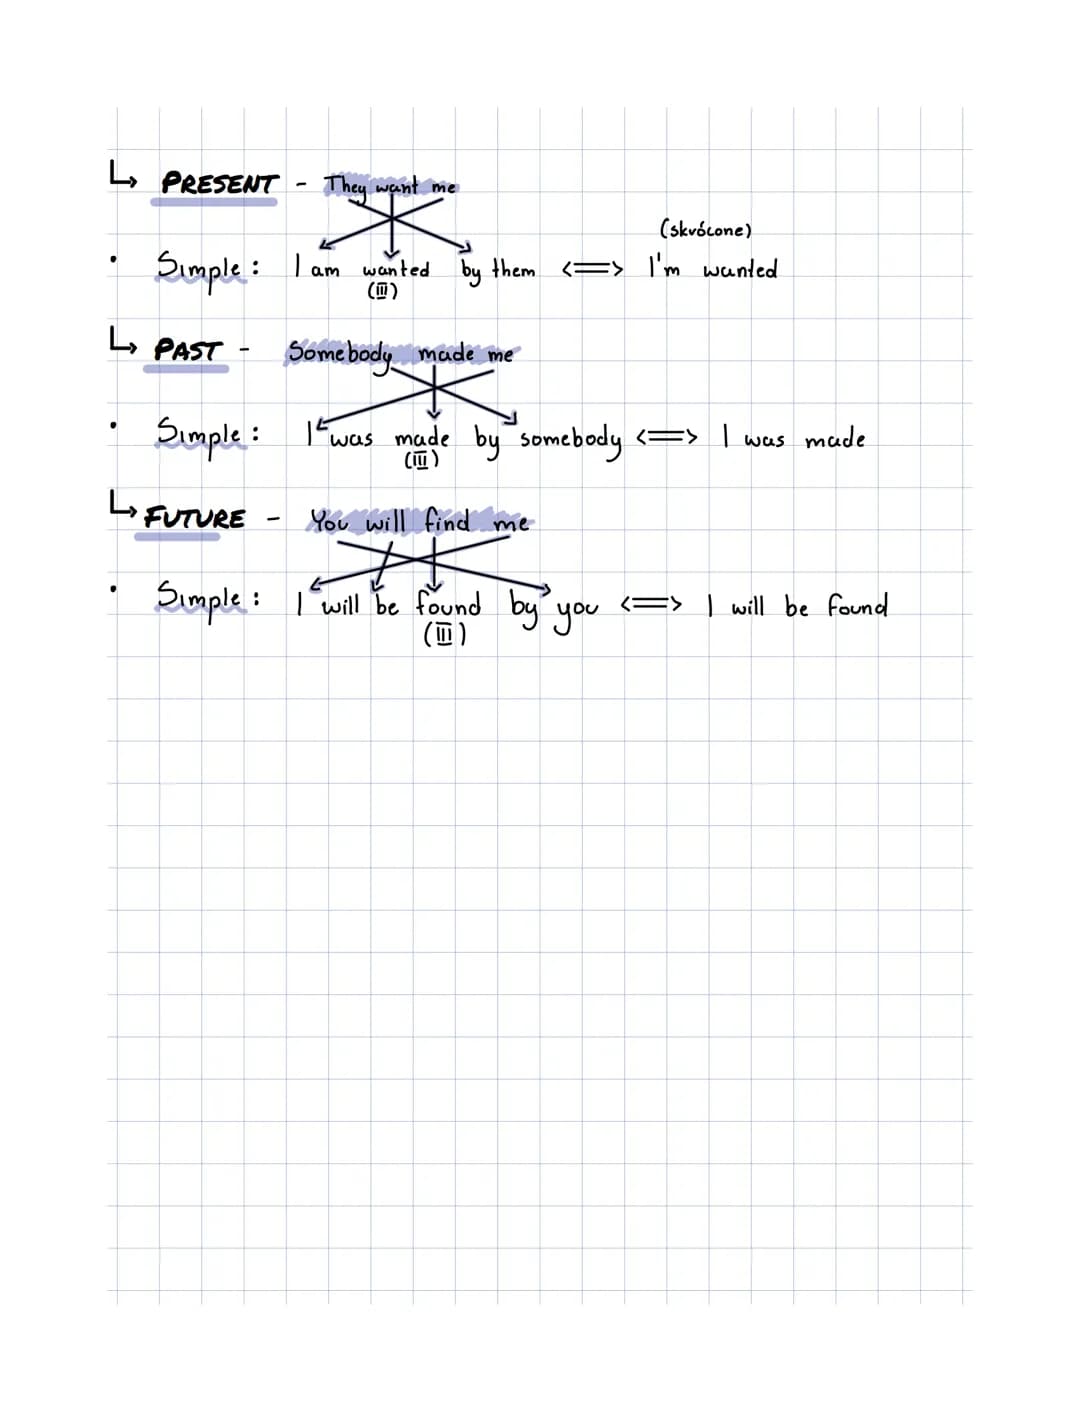 ↳ PRESENT - They want me
(skrócone)
• Simple: I am wanted by them <=> I'm wanted
(III)
↳ PAST - Somebody made me
• Simple: I was made by somebody <=> I was made
(III)
↳ FUTURE - You will find me
• Simple: I will be found by you <=> I will be found
(III)